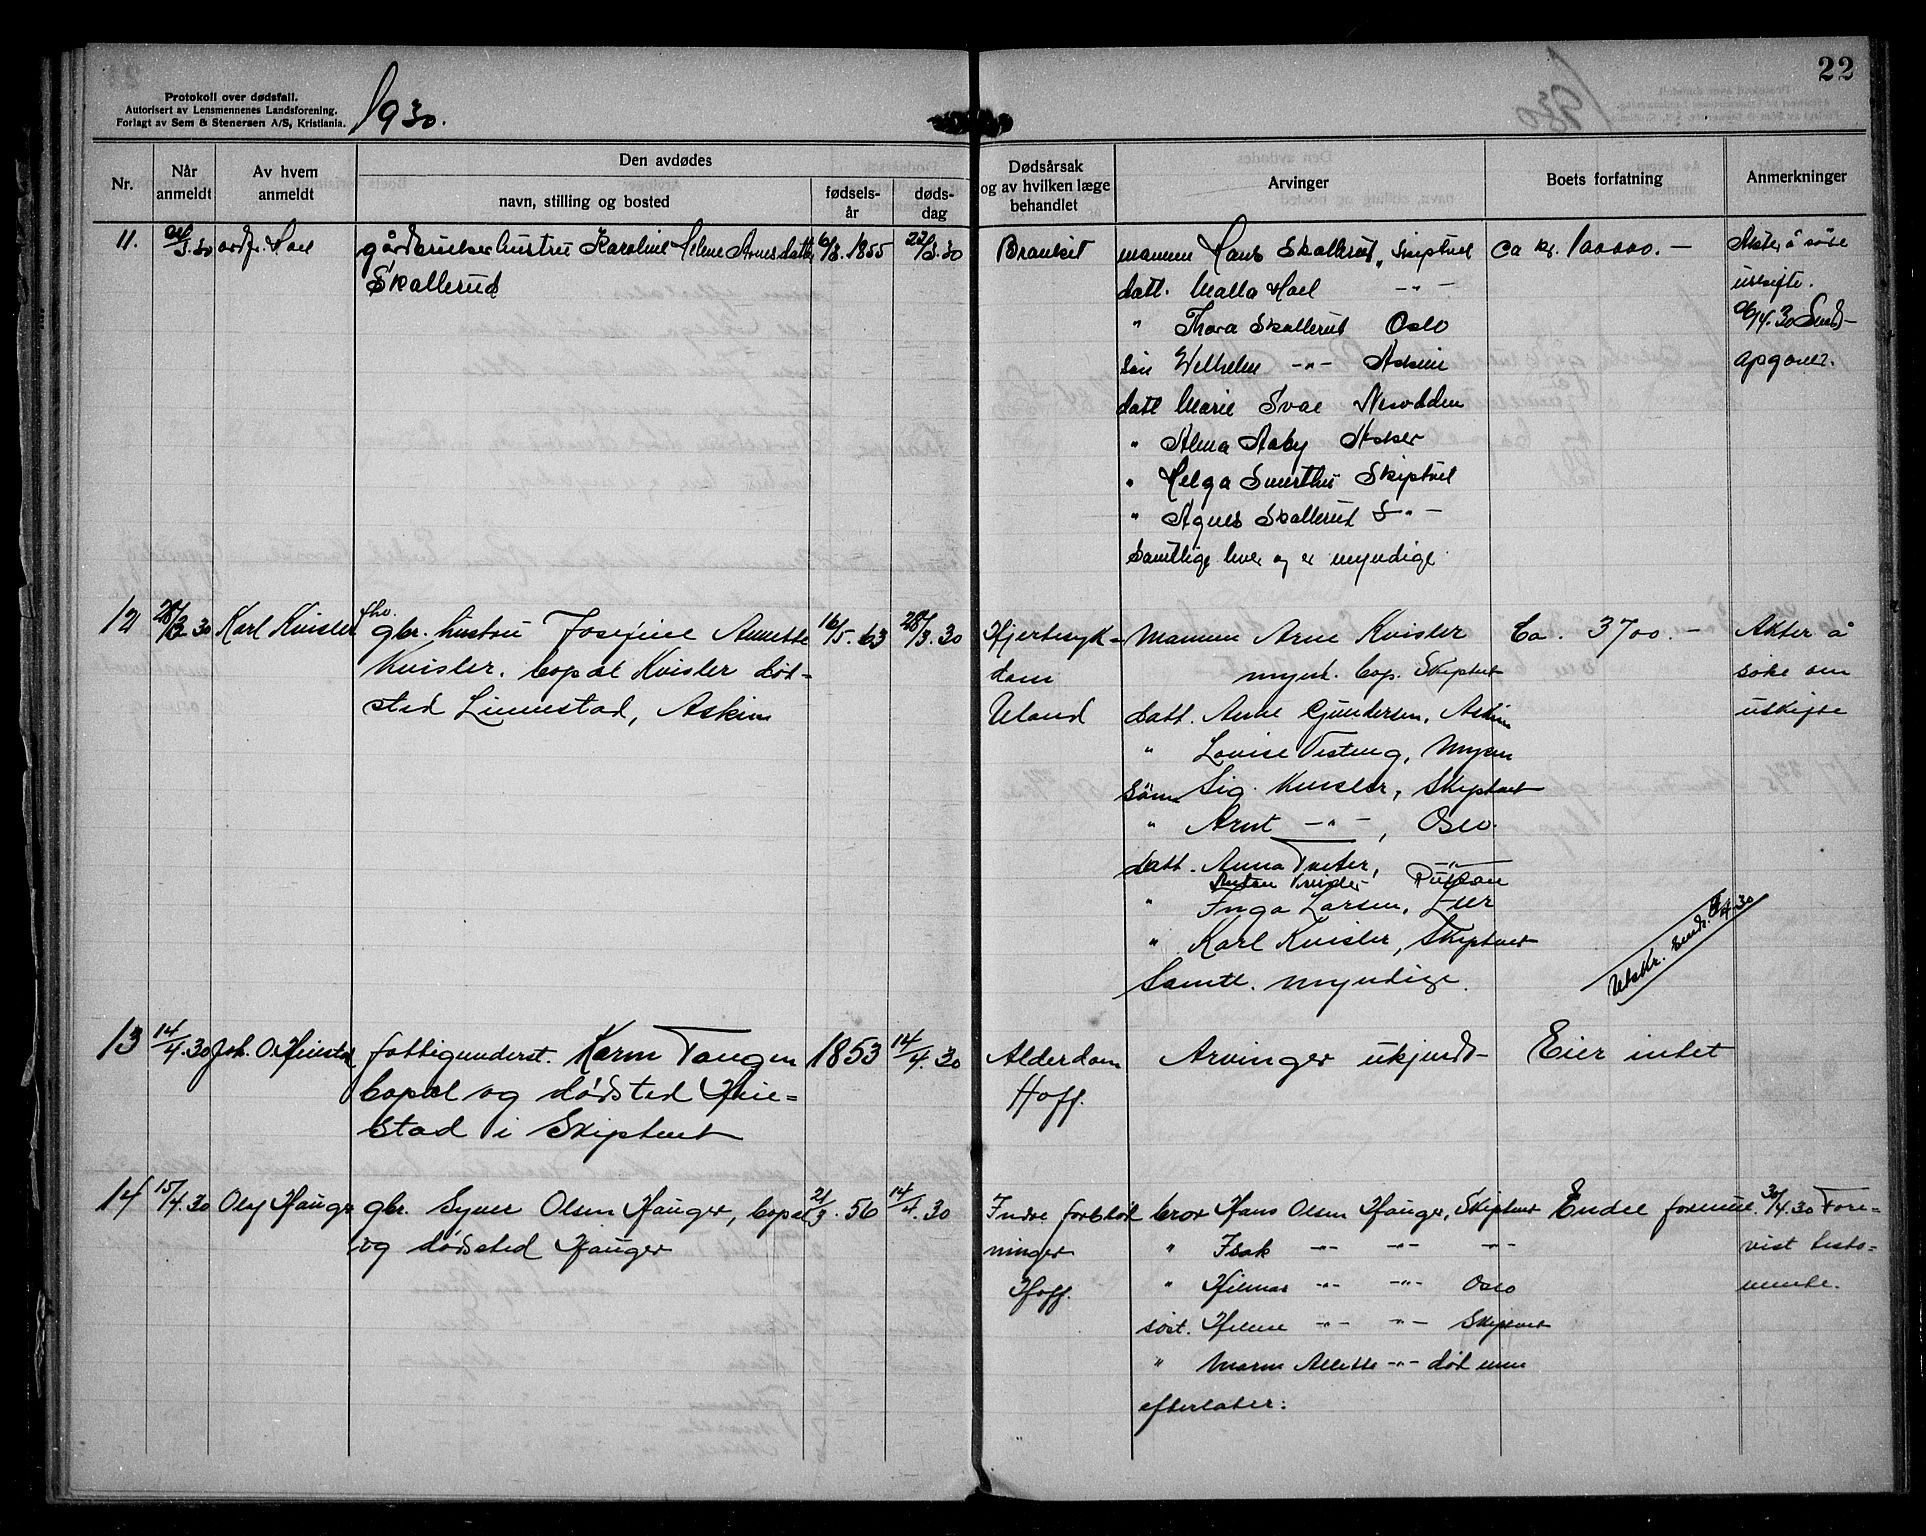 22
Protokoll over dødsfall.
Autorisert av Lensmennenes Landsforening.
Forlagt av Sem & Stenersen A/S, Kristiania.
1930.
Nr.
Når anmeldt
Av hvem anmeldt
Den avdødes
navn, stilling og bosted
fødsels-år
døds-dag
Dødsårsak og av hvilken læge behandlet
Arvinger
Boets forfatning
Anmerkninger
11.
/3.30 ordf. Hoel
gårdbruker hustru Karoline Helene Arnesdatter
Skallerud
6/8. 1855
22/3.30
mannen Hans Skallerud, Skiptvet
datt. Malla Hoel -"-
" Thora Skallerud Oslo
søn Wilhelm -"- Askim
datt Marie Svae Nesodden
" Alma Aaby Asker
" Helga Smerthu Skiptvet
" Agnes Skallerud S -"-
Samtlige lever og er myndige.
Ca kr. 100000.-
Akter å søke
uskifte.
/4.30 Send-
opgaver.
12
28/3.30
Karl Kvisler
fhv.
gbr. hustru Josefine Annette
Kvisler. bopæl Kvisler død-
sted Linnestad, Askim
16/5. 63
28/3. 30
Hjertesyk-
dom
Uland
Mannen Arne Kvisler
mynd. bop. Skiptvet
datt. Anne Gundersen, Askim
" Lovise Vesteng, Mysen
søn Sig. Kvisler, Skiptvet
" Arnt -"-, Oslo.
datt. Anna Tveter, -"-
" Inga Larsen, Lier
" Karl Kvisler, Skiptvet
Samtl. myndige.
Ca. 3700.-
Utskr. sendt /4.30
Akter å
søke om
uskifte
13
14/4.30
Joh. O. Heiestad
fattigunderst. Karen Tangen
bopæl og dødsted Heie-
stad i Skiptvet
1853
14/4.30
Alderdom
Hoff.
Arvinger ukjendt-
Eier intet
14
15/4.30
Olaf Hauger
gbr. Syver Olsen Hauger, bopæl
og dødsted Hauger
21/3. 56
14/4.30
Indre forblød-
ninger
Hoff.
bror Hans Olsen Hauger, Skiptvet
" Isak -"- -"- -"-
" Hilmar -"- -"- Oslo
søst. Helene -"- -"- Skiptvet
" Maren Alette -"- død men
efterlater:
Endel formue.
30/4.30 Fore-
vist testa-
mente.